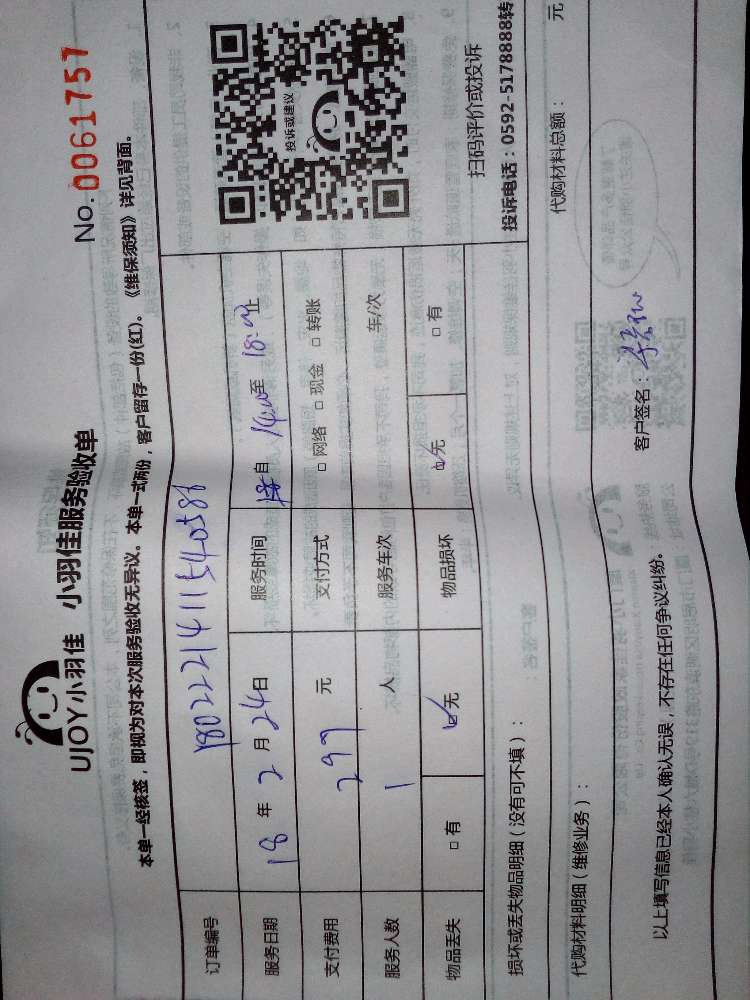 UJOY小羽佳 小羽佳服务验收单
No. 0061757
本单一经核签，即视为对本次服务验收无异议。本单一式两份，客户留存一份(红)。《维保须知》详见背面。
订单编号
服务日期 18 年 2 月 24 日 服务时间 自 14:00 至 18:00 止
支付费用 299 元 支付方式 □ 网络 □ 现金 □ 转账
服务人数 1 人 服务车次 车/次
物品丢失 □ 有 ☑ 无 物品损坏 ☑ 无 □ 有
投诉或建议
扫码评价或投诉
投诉电话：0592-5178888转
损坏或丢失物品明细（没有可不填）：
代购材料明细（维修业务）： 代购材料总额： 元
以上填写信息已经本人确认无误，不存在任何争议纠纷。 客户签名：